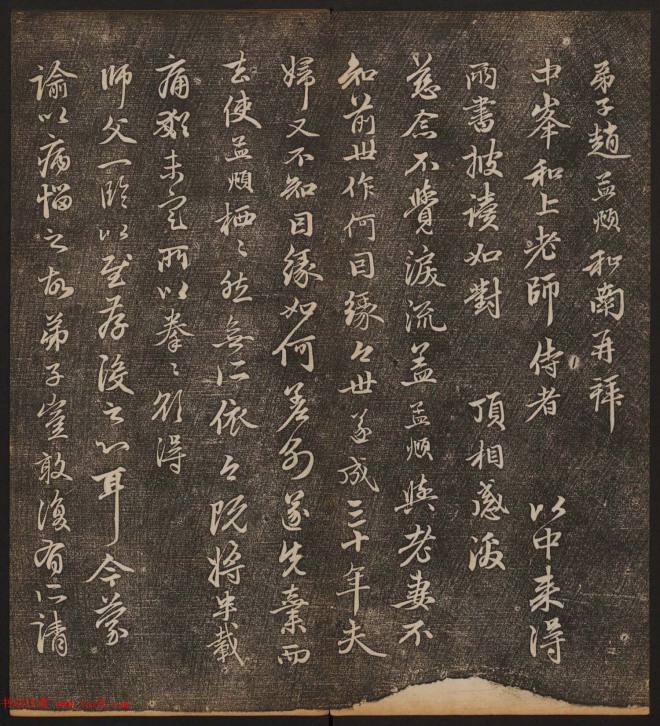 弟子趙孟頫和南再拜
中峯和上老師侍者 以中来得
兩書披读如對 頂相感激
慈念不覺淚流盖孟頫與老妻不
知前世作何因緣今世遂成三十年夫
婦又不知因緣如何差別遂先棄而
去使孟頫栖〻然無所依今既將半載
痛猶未定所以拳〻欲得
師父一臨以至存没之心耳今蒙
諭以病惱之故弟子豈敢復有所請
www.